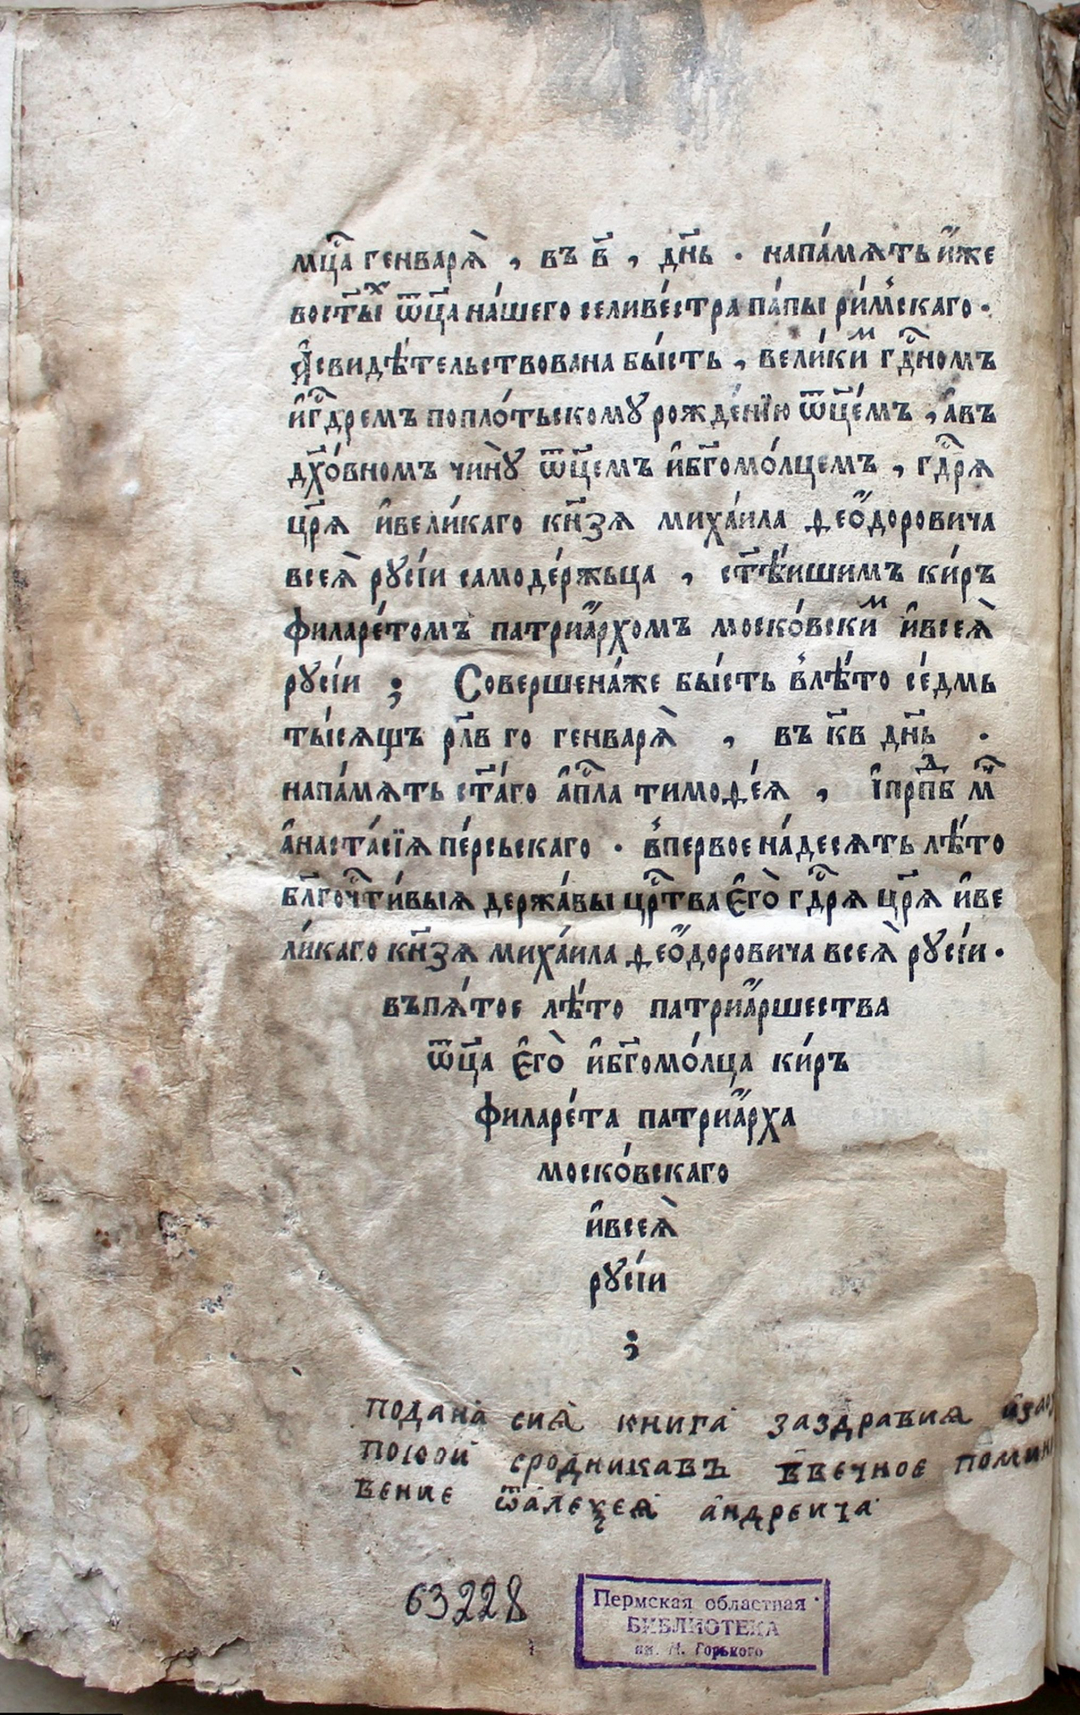 мц҃а генваря̀ , въ в҃ , дн҃ь . напа́мѧть и҆́же
востⷯ҃ы́ ѿц҃а на́шего селиве́стра па́пы ри́мⸯскаго .
А҆свидѣ́тельствована бы́сть , вели́киⷨ гдⷭ҇номъ
и҆гдⷭ҇ремъ попло́тьскомꙋ рожде́нїю ѿц҃е́мъ , а҆въ
дх҃о́вномъ чи́нꙋ ѿц҃емъ и҆бг҃омо́лцемъ , гдⷭ҇рѧ
цр҃ѧ и҆вели́каго кн҃зѧ миха́ила ѳео́доровича
всеѧ̀ рꙋсі́и самоде́ржьца , ст҃ѣ́ишимъ ки́ръ
филаре́томъ патриа́рхомъ моско́вскиⷨ и҆всеѧ̀
рꙋсі́и ; Совершена́же бы́сть в̾лѣ́то се́дмь
ты́сѧщъ рл҃в го генварѧ̀ , въ кв҃ дн҃ь .
напа́мѧть ст҃а́го а҆пⷭ҇ла тимоѳе́ѧ , і҆прпⷣб мⷱ҇
а҆наста́сїѧ пе́рсьскаго . в̾первое на́десѧть лѣ́то
бл҃гочⷭ҇ти́выѧ держа́вы црⷭ҇тва є҆го̀ гдⷭ҇рѧ цр҃ѧ и҆ве
ли́каго кн҃зѧ миха́ила ѳео́доровича всеѧ̀ рꙋсі́и .
въпѧ́тое лѣ́то патриа́ршества
ѿц҃а є҆го̀ и҆бг҃омо́лца ки́ръ
филаре́та патриа́рха
моско́вскаго
и҆всеѧ̀
рꙋсі́и
;
подана сиѧ книга заздравиѧ
сродникавъ ввечное
вение ѿалеѯеѧ андреича
63228
Пермская областная
БИБЛИОТЕКА
им. М. Горького